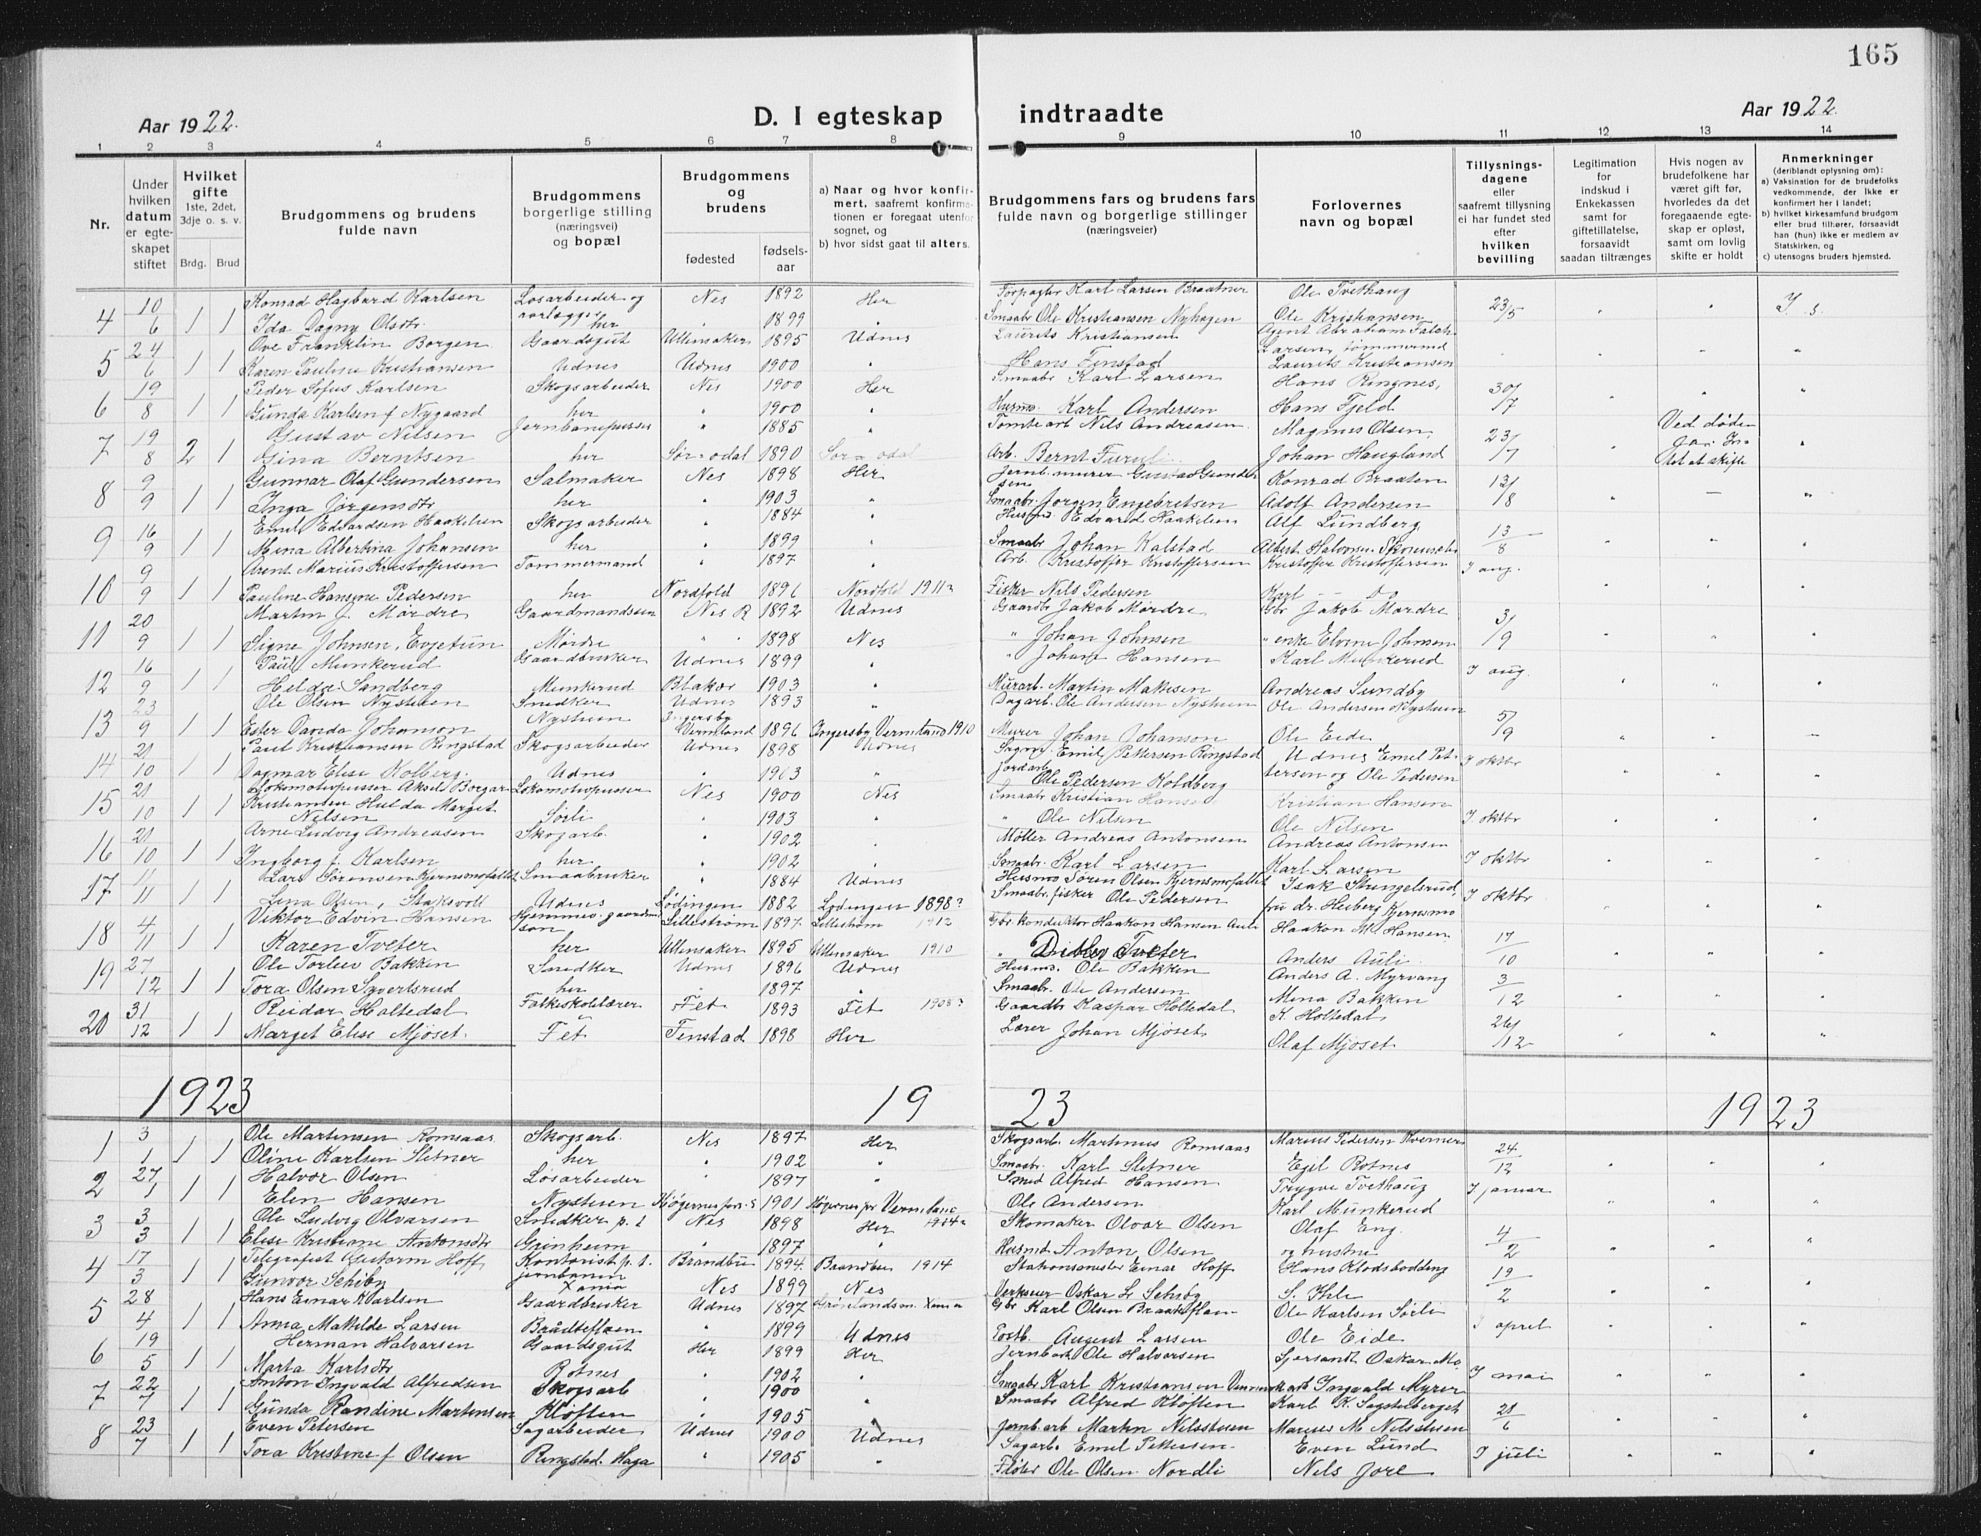 165
Aar 1922.
D. I egteskap indtraadte
Aar 1922
1 2 3 4 5 6 7 8 9 10 11 12 13 14
Nr.
Under hvilken datum er egteskapet stiftet
Hvilket gifte
1ste, 2det, 3dje o. s. v.
Brdg. Brud
Brudgommens og brudens fulde navn
Brudgommens borgerlige stilling (næringsvei) og bopæl
Brudgommens og brudens
fødested
fødselsaar
a) Naar og hvor konfirmert, saafremt konfirmationen er foregaat utenfor sognet, og
b) hvor sidst gaat til alters.
Brudgommens fars og brudens fars fulde navn og borgerlige stillinger (næringsveier)
Forlovernes navn og bopæl
Tillysningsdagene eller saafremt tillysning ei har fundet sted efter hvilken bevilling
Legitimation for indskud i Enkekassen samt for giftetillatelse, forsaavidt saadan tiltrænges
Hvis nogen av brudefolkene har været gift før, hvorledes da det foregaaende egteskap er opløst, samt om lovlig skifte er holdt
Anmerkninger (deriblandt oplysning om):
a) Vaksination for de brudefolks vedkommende, der ikke er konfirmert her i landet;
b) hvilket kirkesamfund brudgom eller brud tilhører, forsaavidt han (hun) ikke er medlem av Statskirken, og
c) utensogns bruders hjemsted.
4 10/6 1 1 Konrad Hagbard Karlsen Løsarbeider og Nes 1892 Her Forpagter Karl Larsen Braatner Ole Tvethaug 23/5
Ida Dagny Olsdtr. her " 1899 Smaabr Ole Kristiansen Nyhagen Ole Kristiansen
5 24/6 1 1 Ove Franklin Borgen Gaardsgut Ullensaker 1895 Udnes Laurits Kristiansen Agent Abraham Falch Larsen, Tømmerrud
Karen Pauline Kristiansen Udnes Udnes 1900 " Hans Finstad Laurits Kristiansen
6 19/8 1 1 Peder Sofus Karlsen Skogsarbeider Nes 1900 Her Smaabr Karl Larsen Hans Ringnes, 30/7
Gunda Karlsen f Nygaard her " 1900 " Husmd. Karl Andersen Hans Fjeld
7 19/8 2 1 Gustav Nilsen Jernbanepusser " 1885 " Tomtearb Nils Andreasen Magnus Olsen, 23/7 Ved døden
Gina Berntsen her Sør-odal 1890 Sør-odal Arb. Bernt Furul Johan Haugland
8 9/9 1 1 Gunnar Olaf Gundersen Salmaker Nes 1898 Her Jernb. murer Gustav Gundersen Konrad Braaten 13/8
Inga Jörgensdtr her " 1903 " Smaabr Jörgen Engebretsen Adolf Andersen
9 16/9 1 1 Emil Edvardsen Haakelien Skogsarbeider " 1884 Husmd Edvard Haakelien Alf Lundberg 13/8
Mina Albertina Johansen her " 1899 Smaabr Johan Kalstad Albert Halvorsen
10 9/9 1 1 Arent Marius Kristoffersen Tømmermand " 1897 Arb. Kristoffer Kristoffersen Kristoffer Kristoffersen I aug.
Pauline Hansine Pedersen her Nordfold 1896 Nordfold 1911? Fisker Nils Pedersen Karl — do
11 20/9 1 1 Martin J. Mørdre Gaardmandssøn Nes R 1892 Udnes Gaardbr Jakob Mørdre Gbr Jakob Mørdre 3/9
Signe Johnsen, Evjetun Mørdre " 1898 Nes " Johan Johnsen " enke Elvine Johnsen
12 16/9 1 1 Paul Munkerud Gaardbruker Udnes 1899 " " Johan Hansen Karl Munkerud I aug.
Helda Sandberg Munkerud Blaker 1903 " Murarb. Martin Madsen Andreas Sundby
13 23/9 1 1 Ole Olsen Nystuen Snedker Udnes 1893 " Dagarb. Ole Andersen Nystuen Ole Andersen Nystuen 5/9
Ester Davida Johanson Nystuen Ingersby Vermland 1896 Ingersby Vermland 1910 Murer Johan Johanson Ole Eide
14 21/10 1 1 Paul Kristiansen Ringstad Skogsarbeider Udnes 1898 Udnes Emil Pettersen Ringstad Udnes Emil Pettersen og Ole Pedersen I oktbr
Dagmar Elise Kolberg Udnes " 1903 " Jordarb. Ole Pedersen Koldberg
15 21/10 1 1 Lokomotivpusser Aksel Borgar Kristiansen Lokomotivpusser Nes 1900 Nes Smaabr Kristian Hansen Kristian Hansen I oktbr
Hulda Marget Nilsen Sørli " 1903 " Ole Nilsen Ole Nilsen
16 21/10 1 1 Arne Ludvig Andreasen Skogarb. " 1902 Møller Andreas Antonsen Andreas Antonsen I oktbr
Ingborg f. Karlsen her " 1902 Smaabr. Karl Larsen Karl Larsen
17 11/11 1 1 Lars Sørensen Kjernsmofallet Smaabruker " 1884 Udnes Husmd Søren Olsen Kjernsmofallet Isak Stengelsrud, I oktbr
Lina Olsen, Staksvoll Udnes Lødingen 1882 Lødingen 1898? Smaabr. fisker Ole Pedersen fru dr. Heiberg Kjernsmo
18 4/11 1 1 Viktor Edvin Hansen Lillestrøm 1897 Lillestrøm 1912 Gbr. konduktør Haakon Hansen Auli Haakon M. Hansen 17/10
Karen Tveter her Ullensaker 1895 Ullensaker 1910 " Ditlev Tveter Anders Auli
19 27/12 1 1 Ole Torlev Bakken Snedker Udnes 1896 Udnes Husmd. Ole Bakken Anders A. Myrvang 3/12
Tora Olsen Syvertsrud her " 1897 " Smaabr. Ole Andersen Mina Bakken
20 31/12 1 1 Reidar Holtedal Folkeskolelærer Fet 1893 Fet 1908? Gaardbr Kaspar Holtedal K. Holtedal 26/12
Marget Elise Mjøset. Fet Finstad 1898 Her Lærer Johan Mjøset Olaf Mjøset
1923 19 23 1923
1 3/1 1 1 Ole Martinsen Romsaas Skogsarb. Nes 1897 Her Skogsarb. Martinus Romsaas Marius Pedersen Kverner 24/12
Oline Karlsen Sletner her " 1902 " Smaabr. Karl Sletner Egil Rotnes
2 27/1 1 1 Halvor Olsen Løsarbeider " 1897 Smed Alfred Hansen Trygve Tvethaug I januar
Elen Hansen Nystuen 1901 Vermland Ole Andersen Karl Munkerud
3 3/3 1 1 Ole Ludvig Olvarsen Snedker p. t. Nes 1898 Her Skomaker Olvar Olsen Olaf Eng 4/2
Elise Kristiane Antonsdtr Grinheim " 1897 " Husmd. Anton Olsen og hustru
4 17/3 1 1 Telegrafist Guttorm Hoff Kontorist p. t. jernbanen Brandbu 1894 Brandbu 1914 Stationsmester Einar Hoff Hans Klodsbodding 19/2
Gunvor Schiby Xania Nes 1899 Nes Verkseier Oskar L Schiby S. Ihle
5 28/4 1 1 Hans Einar Karlsen Gaardbruker Udnes 1897 Gbr Karl Olsen Braateflaen Ole Karlsen Sørli I april
Anna Matilde Larsen Braateflaen " 1899 Udnes Postb. August Larsen Ole Eide
6 19/5 1 1 Herman Halvorsen Gaardsgut Her 1899 Her Jernbarb Ole Halvorsen Sjersant Oskar Mo I mai
Marta Karlsdtr Rotnes " 1902 " Smaabr Karl Kristiansen Ingvald Myrer
7 22/7 1 1 Anton Ingvald Alfredsen Skogsarb " 1900 Smaabr Alfred Kløften Karl K. Sagstuberget 21/6
Gunda Randine Martinsen Kløften " 1905 " Jernb. arb Martin Nilsstuen Marius M. Nilsstuen
8 23/7 1 1 Even Petersen Sagarbeider Udnes 1900 Udnes Sagarb. Emil Pettersen Even Lund I juli
Tora Kristine f Olsen Ringstad. Haga " 1905 " Fløter Ole Olsen Nordli Nils Jore